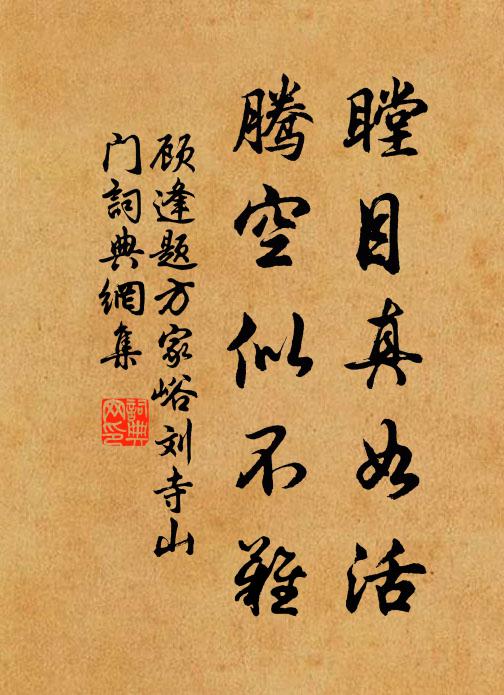 瞠目真如活
腾空似不难
顾逢题方家峪刘寺山
门词典網集
詞典網印